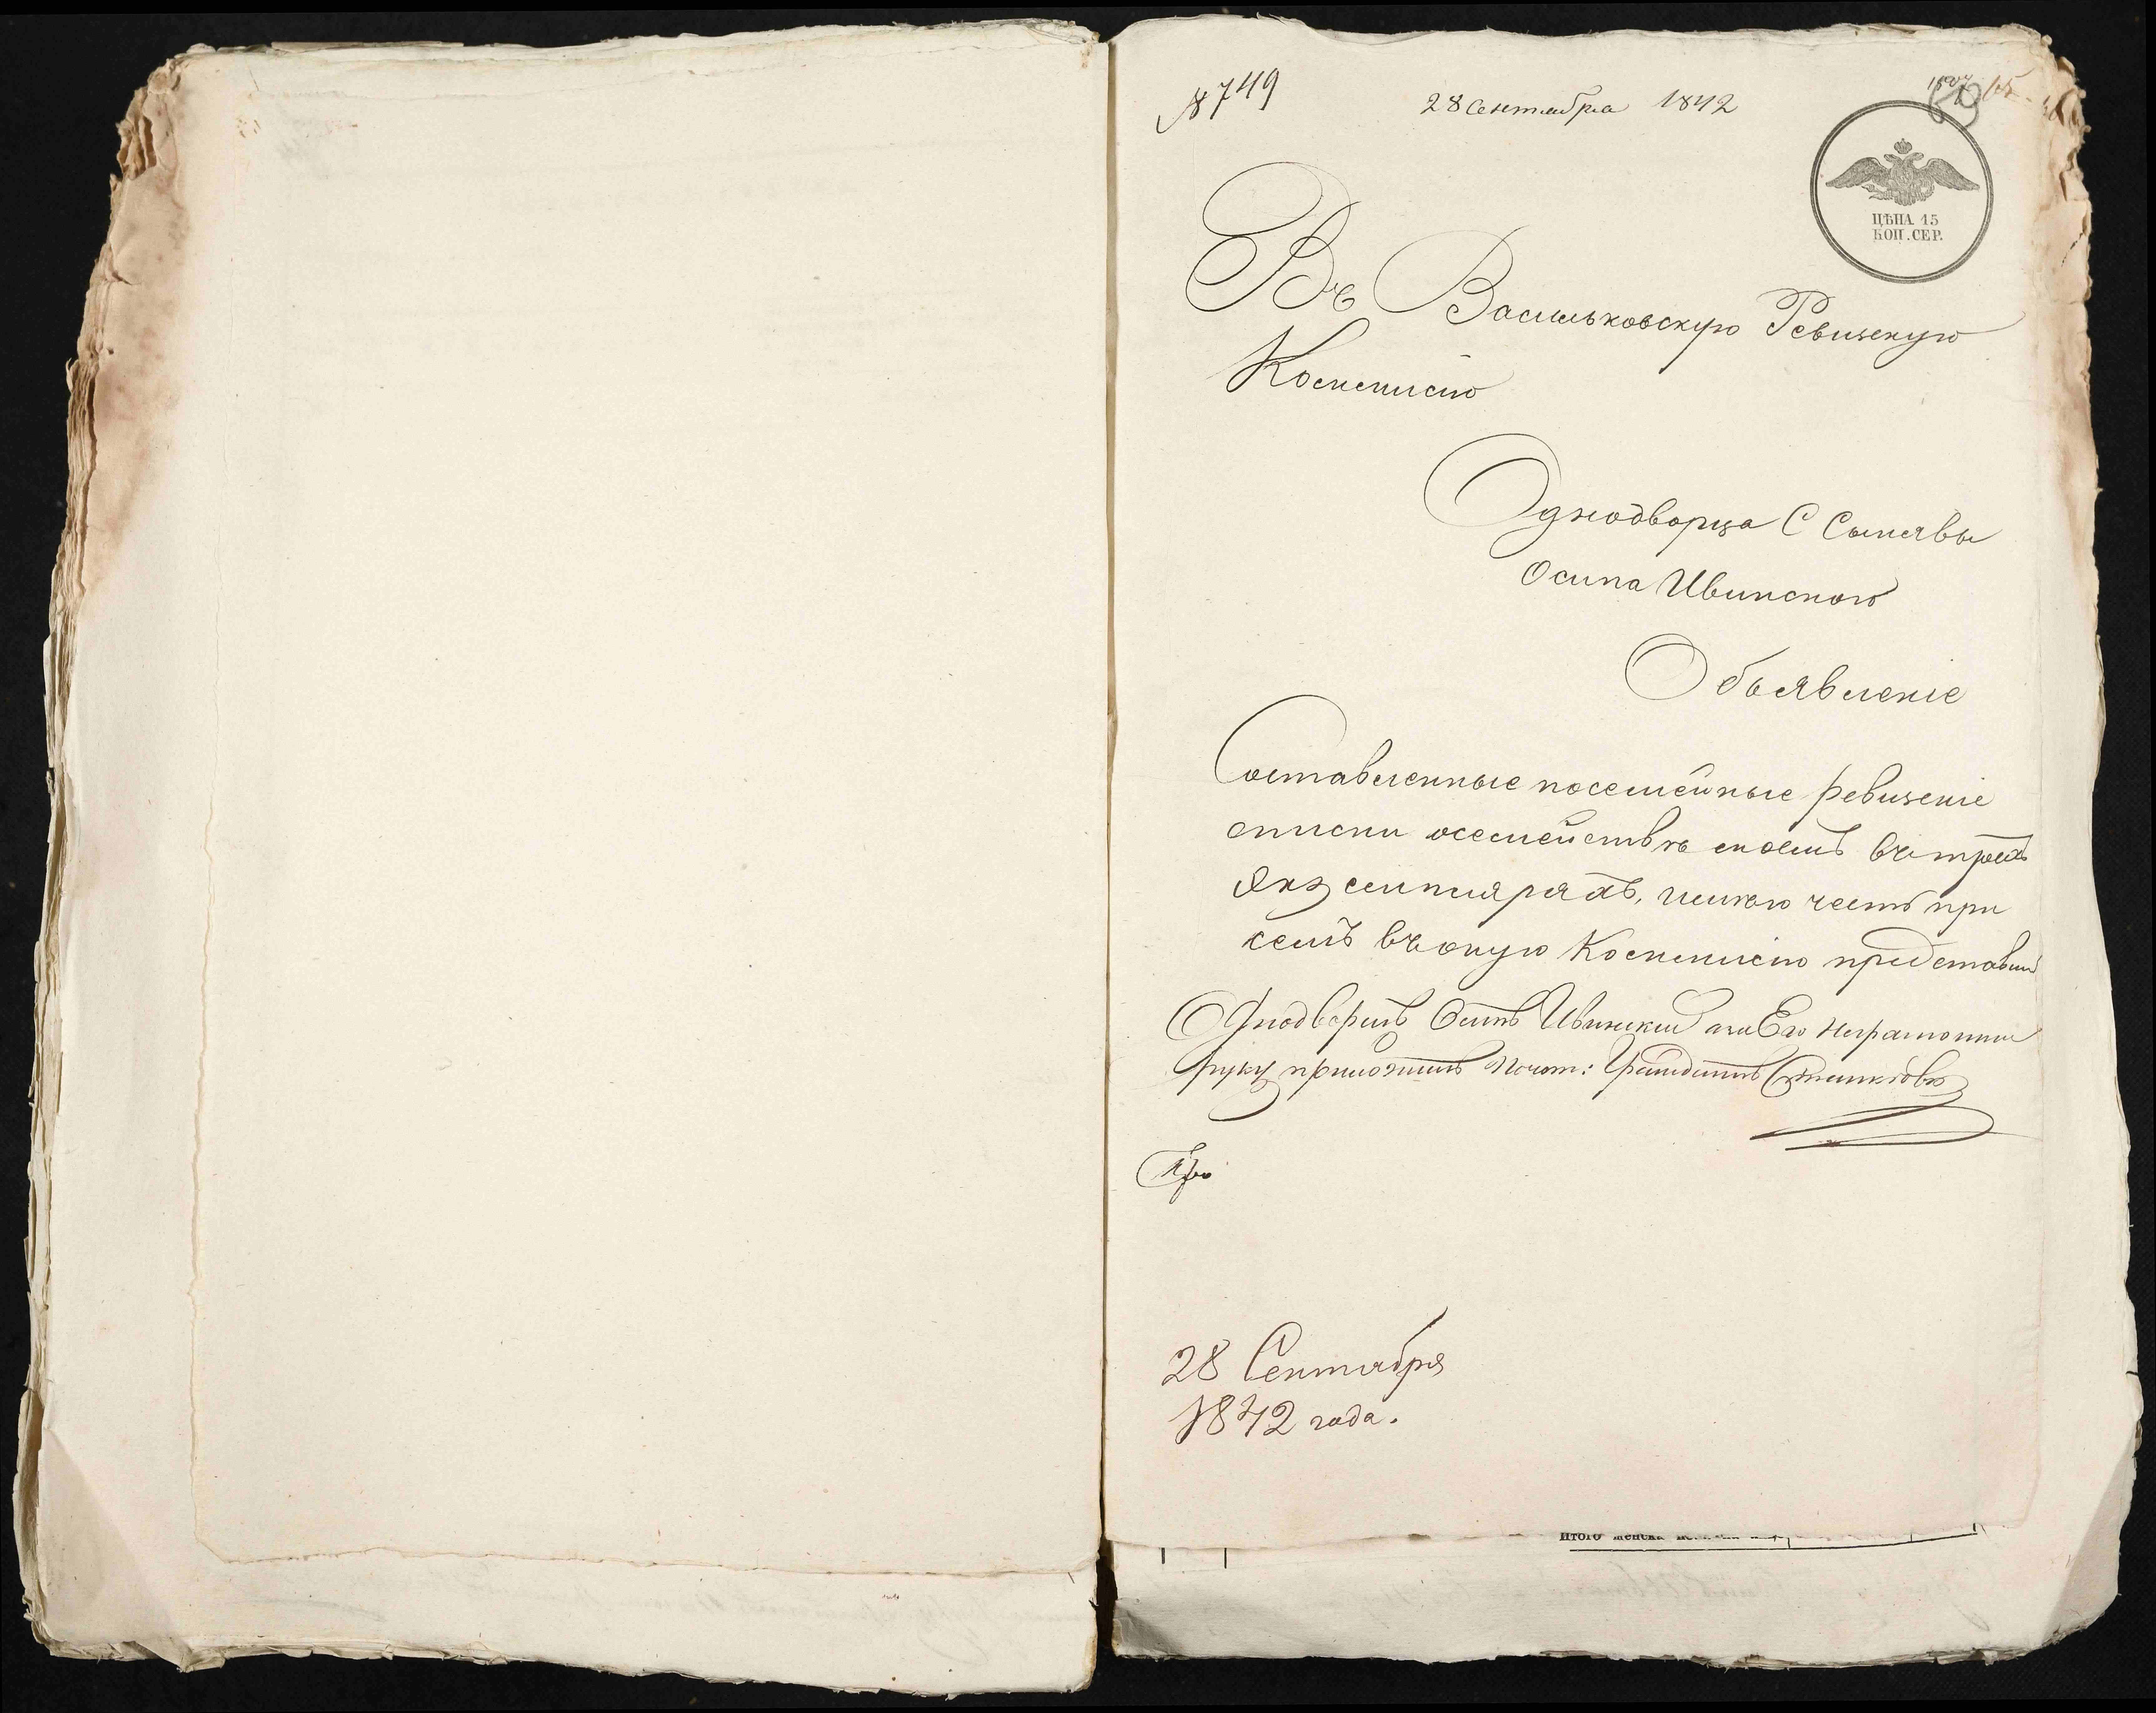 № 749
28 Сентября 1842
ЦѢНА 15
КОП. СЕР.
Въ Васильковскую Ревизскую
Коммисию
Однодворца С Сынявы
Осипа Ивинского
Объявленіе
Составленные посемейные ревизскіе
списки осемействѣ моемъ въ трехъ
Экземплярахъ, имѣю честь при
семъ въ оную Коммисію представить
Однодворецъ Осипъ Ивинский а за Его неграмотни
руку приложилъ Почот: Гражданинъ
28 Сентября
1842 года.
Итого женска